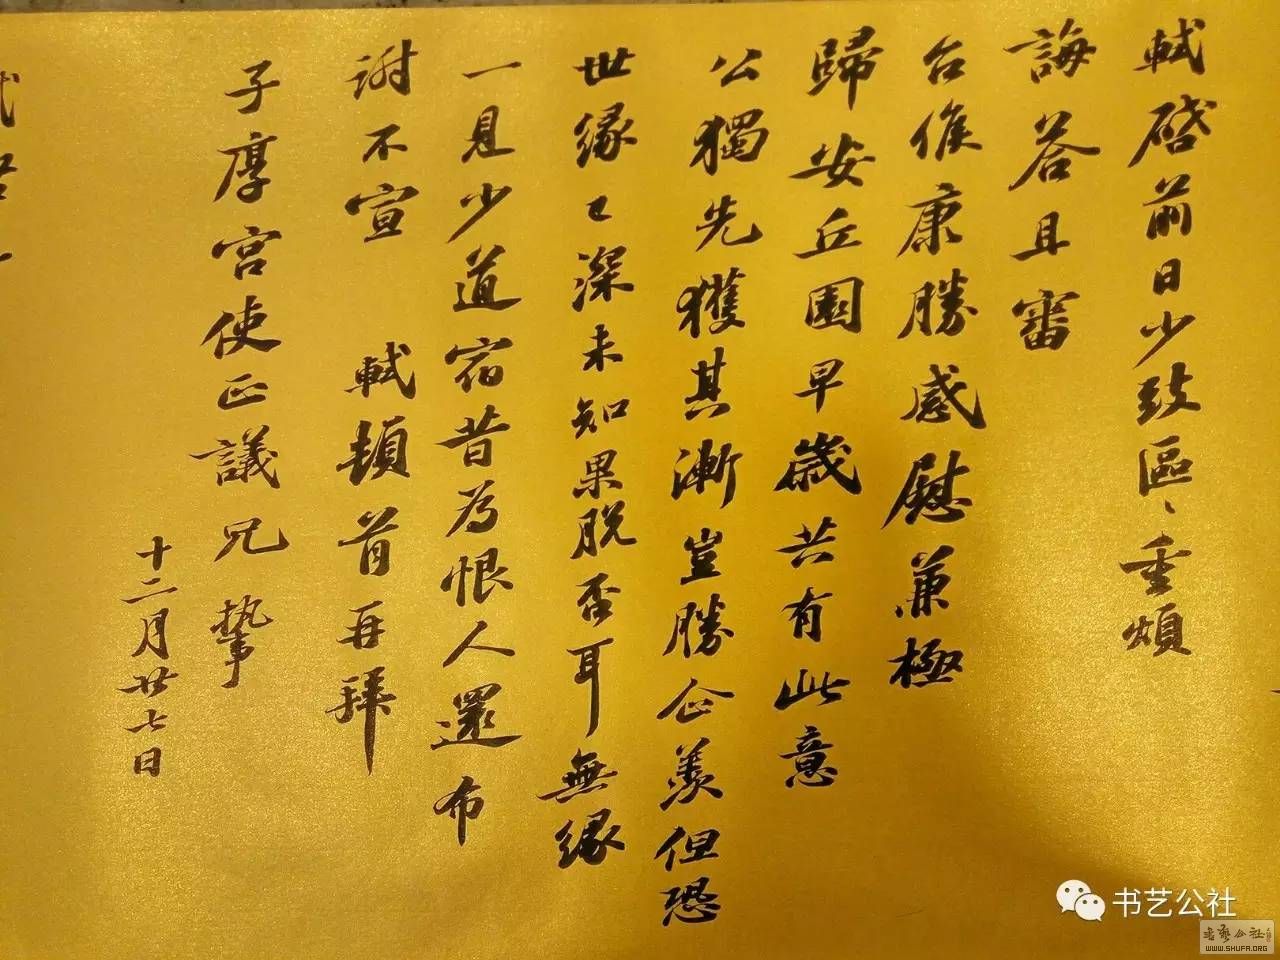 軾啓前日少致區〻重煩
誨荅且審
台候康勝感慰兼極
歸安丘園早歲共有此意
公獨先獲其漸豈勝企羨但恐
世緣已深未知果脫否耳無緣
一見少道宿昔為恨人還布
謝不宣 軾頓首再拜
子厚宮使正議兄執事
十二月廿七日
书艺公社
书艺公社
WWW.SHUFA.ORG